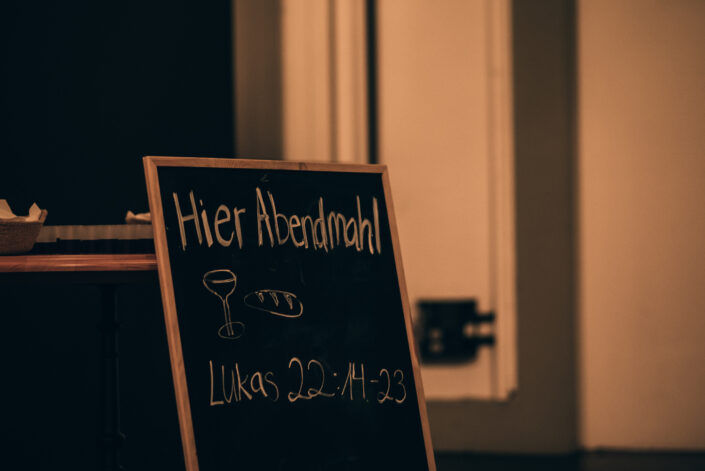 Hier Abendmahl
Lukas 22:14-23